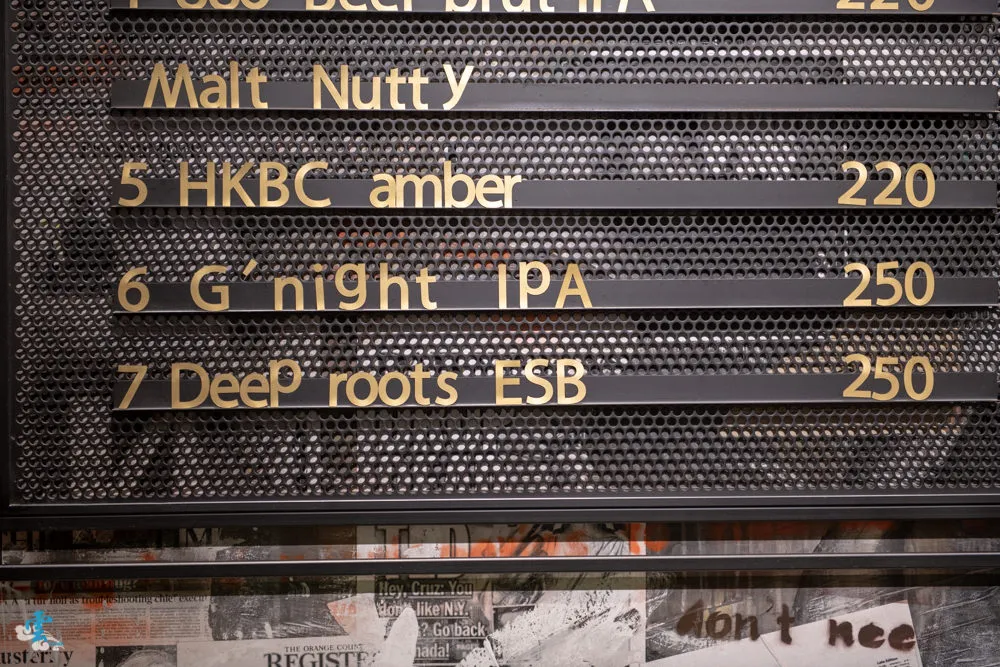 Beer brut IPA 220
Malt Nutty
5 HKBC amber 220
6 G'night IPA 250
7 Deep roots ESB 250
Hey, Cruz: You
don't like N.Y.
? Go back
nada!
THE ORANGE COUNTY
REGISTE
don't nee